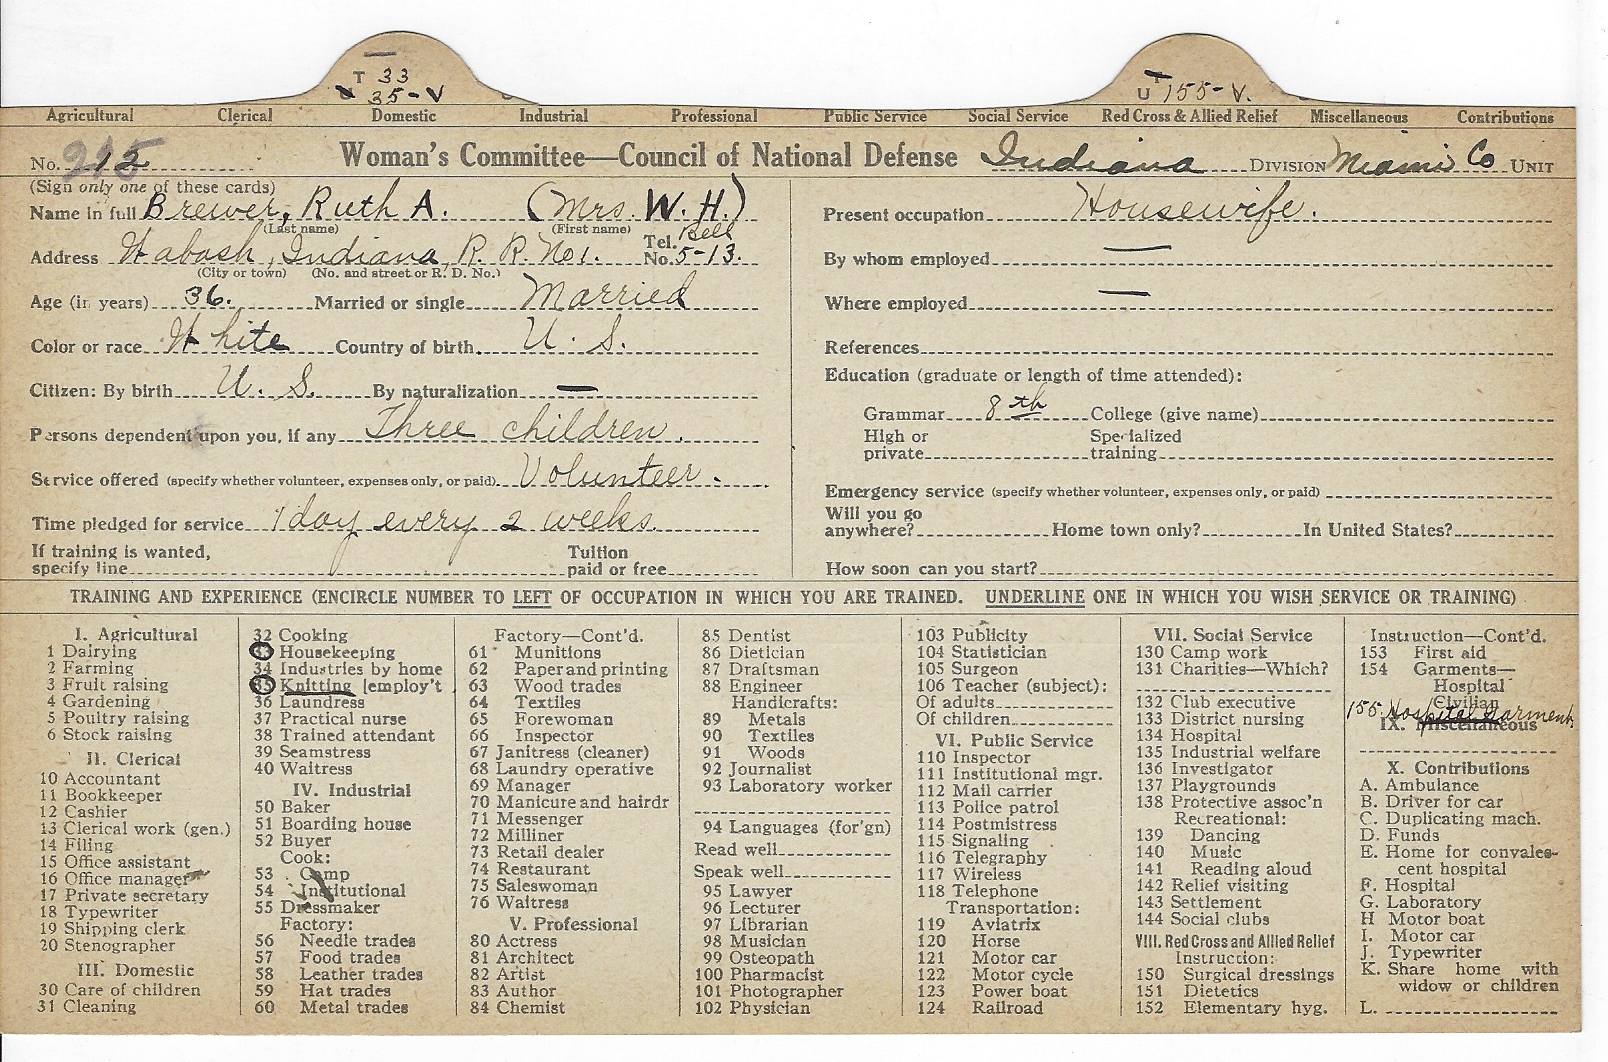 T 33
35-V
U 155-V.
Agricultural Clerical Domestic Industrial Professional Public Service Social Service Red Cross & Allied Relief Miscellaneous Contributions
No. 215 Woman's Committee—Council of National Defense Indiana DIVISION Miami Co UNIT
(Sign only one of these cards)
Name in full Brewer, Ruth A. (Mrs. W. H.)
(Last name) (First name)
Address Wabash, Indiana R. R. No 1. Tel. No. Bell 5-13.
(City or town) (No. and street or R. D. No.)
Age (in years) 36. Married or single Married
Color or race White Country of birth U. S.
Citizen: By birth U. S. By naturalization —
Persons dependent upon you, if any Three children.
Service offered (specify whether volunteer, expenses only, or paid) Volunteer.
Time pledged for service 1 day every 2 weeks.
If training is wanted, specify line Tuition paid or free
Present occupation Housewife.
By whom employed —
Where employed —
References
Education (graduate or length of time attended):
Grammar 8th College (give name)
High or private Specialized training
Emergency service (specify whether volunteer, expenses only, or paid)
Will you go anywhere? Home town only? In United States?
How soon can you start?
TRAINING AND EXPERIENCE (ENCIRCLE NUMBER TO LEFT OF OCCUPATION IN WHICH YOU ARE TRAINED. UNDERLINE ONE IN WHICH YOU WISH SERVICE OR TRAINING)
I. Agricultural
1 Dairying
2 Farming
3 Fruit raising
4 Gardening
5 Poultry raising
6 Stock raising
II. Clerical
10 Accountant
11 Bookkeeper
12 Cashier
13 Clerical work (gen.)
14 Filing
15 Office assistant
16 Office manager
17 Private secretary
18 Typewriter
19 Shipping clerk
20 Stenographer
III. Domestic
30 Care of children
31 Cleaning
32 Cooking
33 Housekeeping
34 Industries by home
35 Knitting [employ't
36 Laundress
37 Practical nurse
38 Trained attendant
39 Seamstress
40 Waitress
IV. Industrial
50 Baker
51 Boarding house
52 Buyer
Cook:
53 Camp
54 Institutional
55 Dressmaker
Factory:
56 Needle trades
57 Food trades
58 Leather trades
59 Hat trades
60 Metal trades
Factory—Cont'd.
61 Munitions
62 Paper and printing
63 Wood trades
64 Textiles
65 Forewoman
66 Inspector
67 Janitress (cleaner)
68 Laundry operative
69 Manager
70 Manicure and hairdr
71 Messenger
72 Milliner
73 Retail dealer
74 Restaurant
75 Saleswoman
76 Waitress
V. Professional
80 Actress
81 Architect
82 Artist
83 Author
84 Chemist
85 Dentist
86 Dietician
87 Draftsman
88 Engineer
Handicrafts:
89 Metals
90 Textiles
91 Woods
92 Journalist
93 Laboratory worker
94 Languages (for'gn)
Read well
Speak well
95 Lawyer
96 Lecturer
97 Librarian
98 Musician
99 Osteopath
100 Pharmacist
101 Photographer
102 Physician
103 Publicity
104 Statistician
105 Surgeon
106 Teacher (subject):
Of adults
Of children
VI. Public Service
110 Inspector
111 Institutional mgr.
112 Mail carrier
113 Police patrol
114 Postmistress
115 Signaling
116 Telegraphy
117 Wireless
118 Telephone
Transportation:
119 Aviatrix
120 Horse
121 Motor car
122 Motor cycle
123 Power boat
124 Railroad
VII. Social Service
130 Camp work
131 Charities—Which?
132 Club executive
133 District nursing
134 Hospital
135 Industrial welfare
136 Investigator
137 Playgrounds
138 Protective assoc'n
Recreational:
139 Dancing
140 Music
141 Reading aloud
142 Relief visiting
143 Settlement
144 Social clubs
VIII. Red Cross and Allied Relief
Instruction:
150 Surgical dressings
151 Dietetics
152 Elementary hyg.
Instruction—Cont'd.
153 First aid
154 Garments—
Hospital
Civilian
155. Hospital Garments
IX. Miscellaneous
X. Contributions
A. Ambulance
B. Driver for car
C. Duplicating mach.
D. Funds
E. Home for convales-
cent hospital
F. Hospital
G. Laboratory
H Motor boat
I. Motor car
J. Typewriter
K. Share home with
widow or children
L.